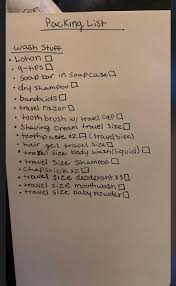 Packing List
Wash Stuff
• Lotion ☐
• q-tips ☐
• Soap bar in soap case ☐
• dry shampoo ☐
• bandaids ☐
• travel razor ☐
• tooth brush w/ travel cap ☐
• Shaving cream travel size ☐
• toothpaste x2 ☐ (travel size)
• hair gel travel size ☐
• travel size body wash (liquid) ☐
• travel size Shampoo ☐
• Chapstick x2 ☐
• travel size deodorant x3 ☐
• travel size mouthwash ☐
• travel size baby powder ☐